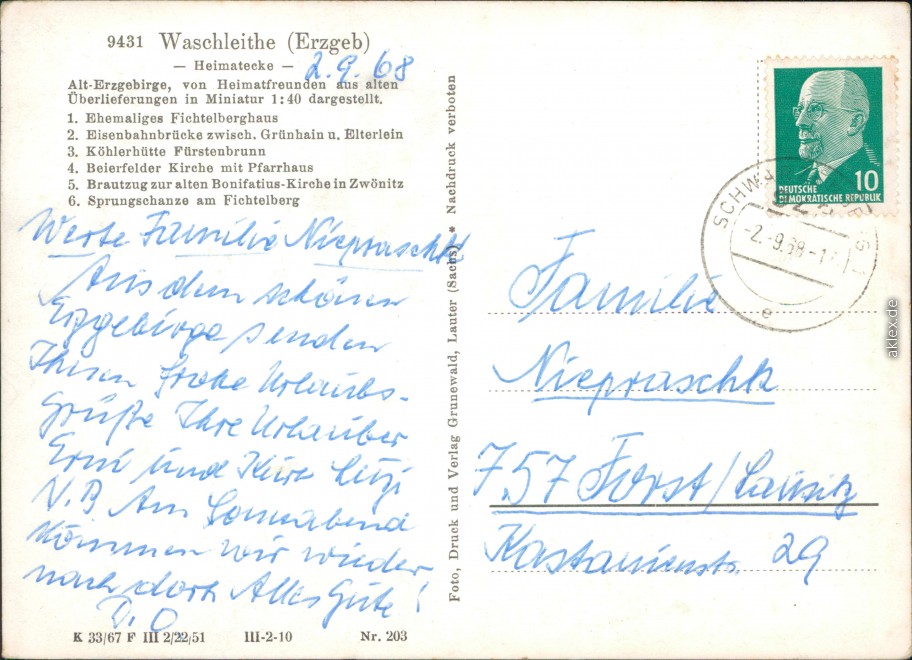 9431 Waschleithe (Erzgeb)
— Heimatecke —
2.9.68
Alt-Erzgebirge, von Heimatfreunden aus alten
Überlieferungen in Miniatur 1:40 dargestellt.
1. Ehemaliges Fichtelberghaus
2. Eisenbahnbrücke zwisch. Grünhain u. Elterlein
3. Köhlerhütte Fürstenbrunn
4. Beierfelder Kirche mit Pfarrhaus
5. Brautzug zur alten Bonifatius-Kirche in Zwönitz
6. Sprungschanze am Fichtelberg
Werte Familie Niepraschk
Aus dem schönen
Erzgebirge senden
Ihnen frohe Urlaubs-
grüße Ihre Urlauber
Erni und Ihre
N.B Am Sonnabend
kommen wir wieder
nach dort Alles Gute!
D. O
K 33/67 F III 2/22/51 III-2-10 Nr. 203
Foto, Druck und Verlag Grunewald, Lauter (Sachs) * Nachdruck verboten
DEUTSCHE
DEMOKRATISCHE REPUBLIK
10
-2.-9.68-1
e
Familie
Niepraschk
757 Forst/Lausitz
Kastanienstr. 29
aklex.de